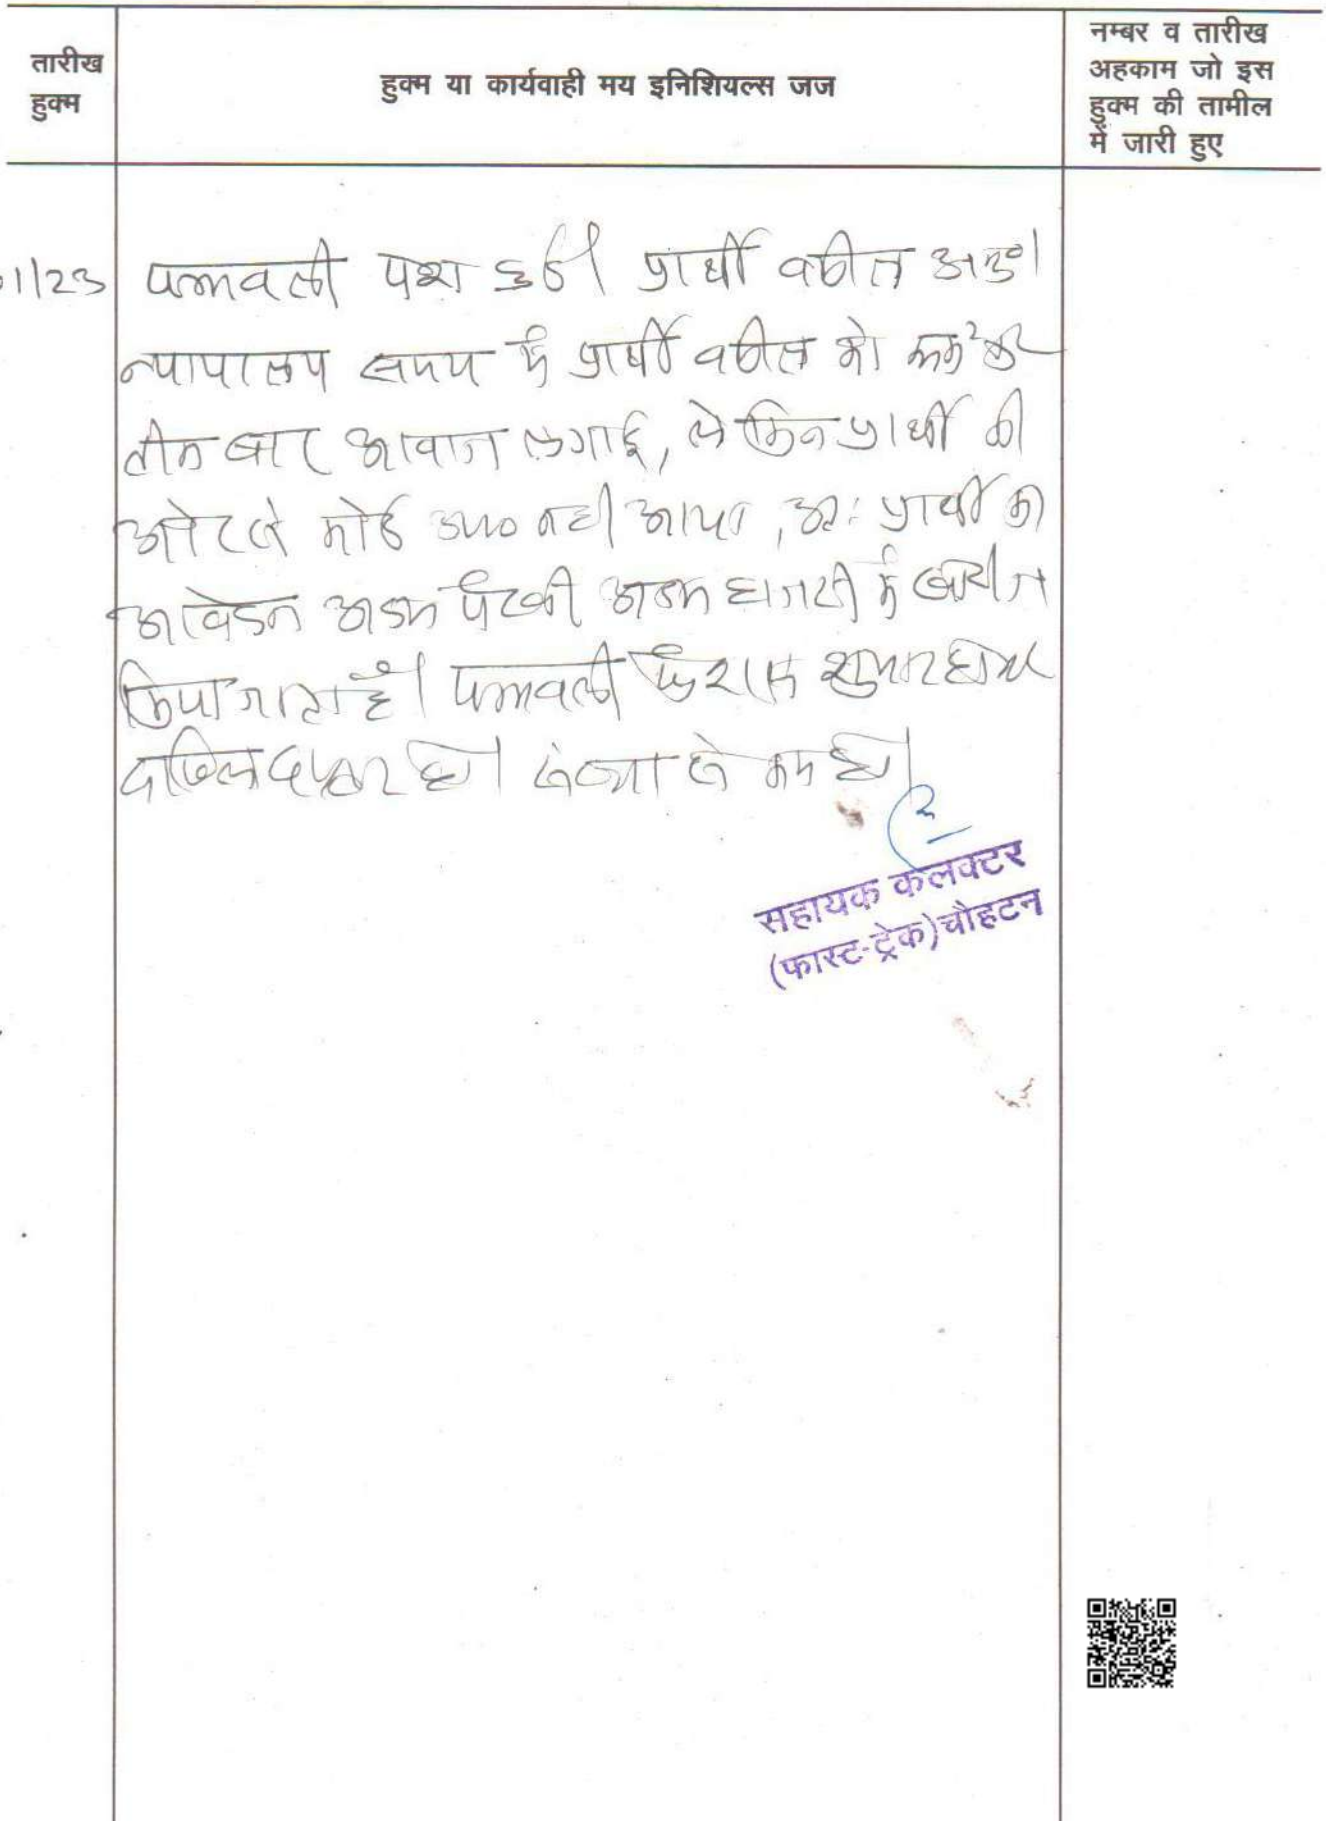 तारीख
हुक्म
हुक्म या कार्यवाही मय इनिशियल्स जज
नम्बर व तारीख
अहकाम जो इस
हुक्म की तामील
में जारी हुए
01/23 पत्रावली पेश हुई। प्रार्थी वकील अनु०।
न्यायालय समय में प्रार्थी वकील को
तीन बार आवाज लगाई, लेकिन प्रार्थी की
ओर से कोई उप० नही आया, अतः प्रार्थी का
आवेदन अदम पैरवी अदम हाजरी में खारीज
किया जाता है। पत्रावली फैशल शुमार होकर
दाखिल दफ्तर हो। संख्या से कम हो।
सहायक कलक्टर
(फास्ट-ट्रेक) चौहटन